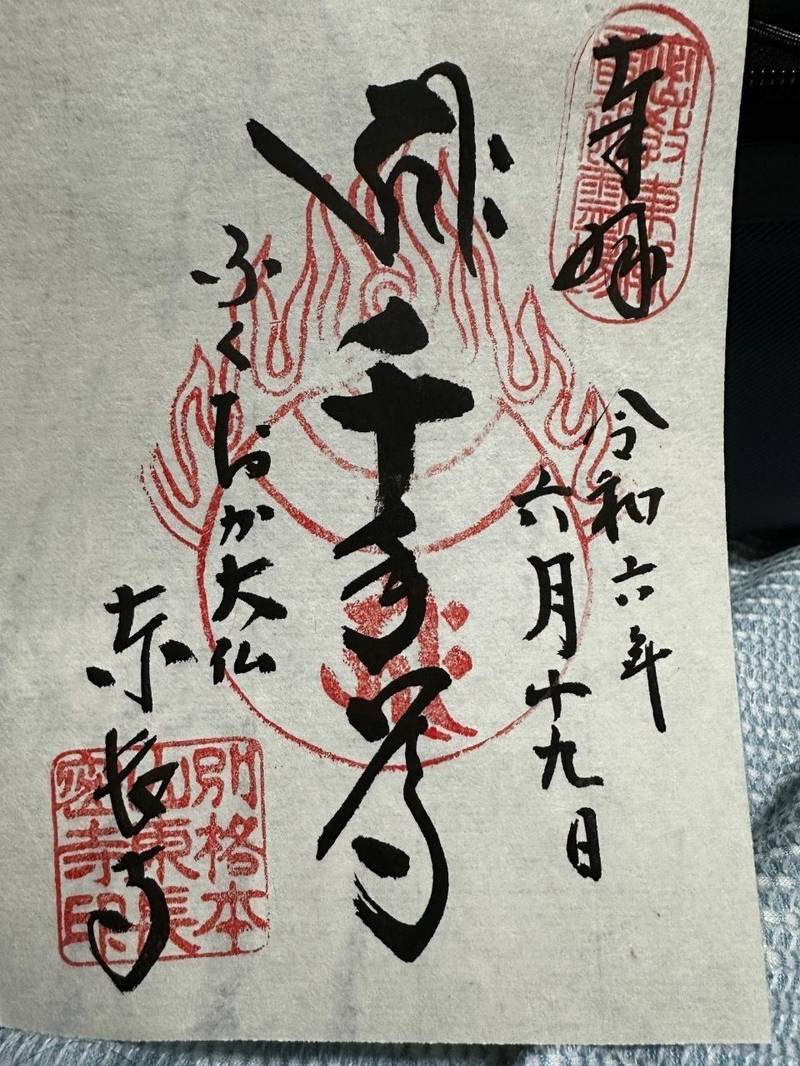 奉拝
令和六年
六月十九日
千手尊
ふくおか大仏
東長寺
別格本
山東長
密寺印